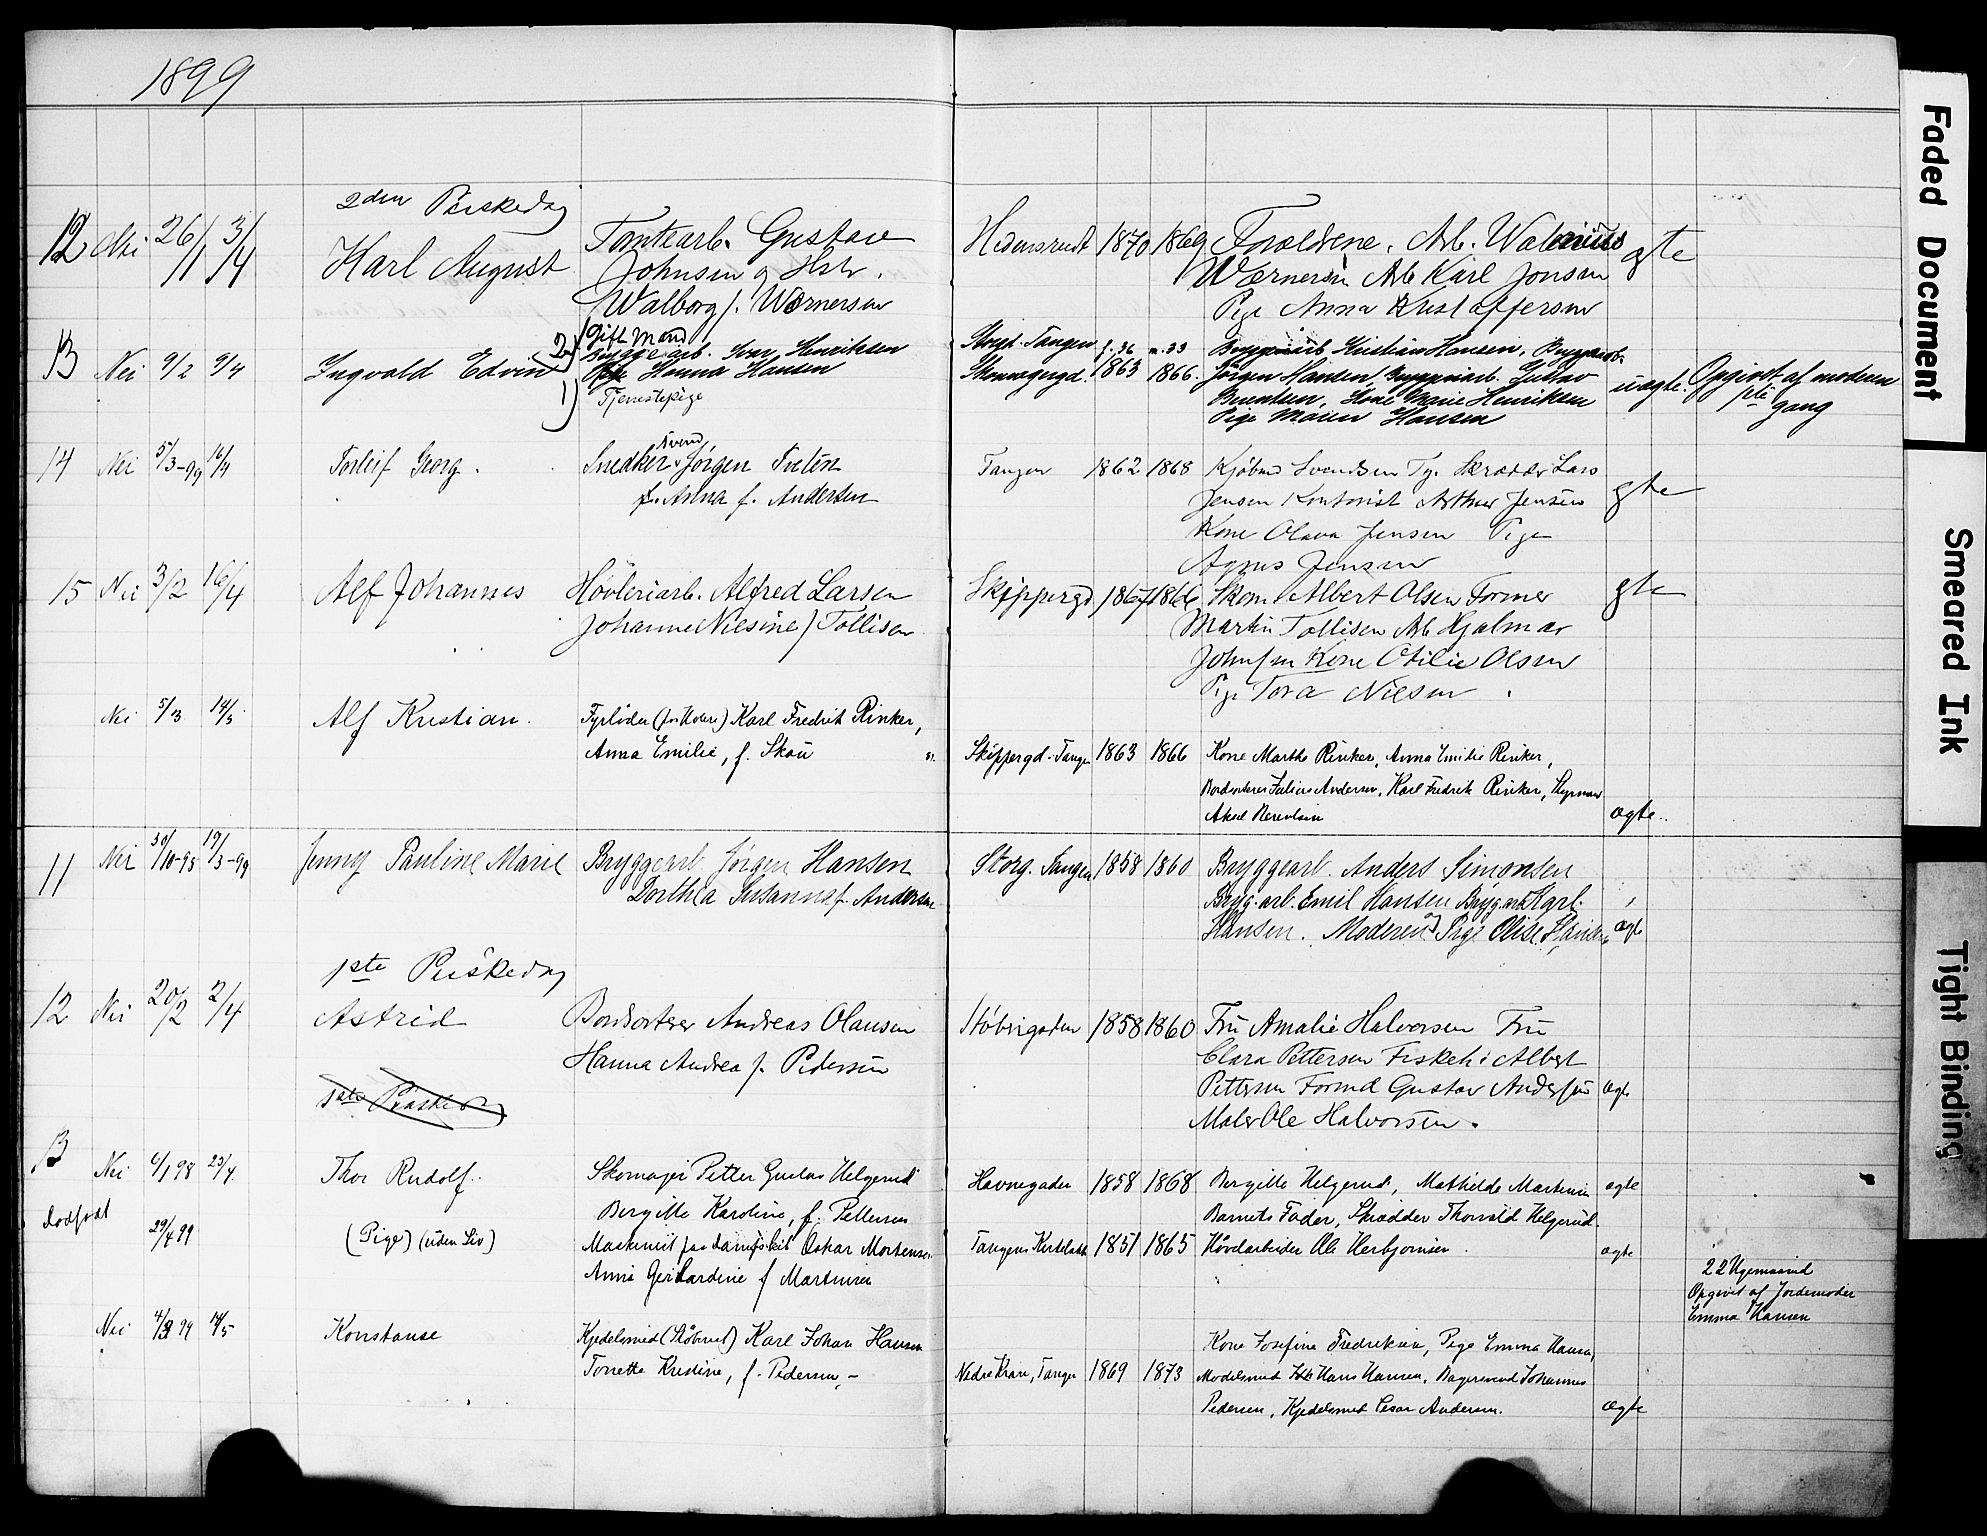 1899
2den Paaskedag
12 Nei 26/1 3/4 Karl August
Tomtearb. Gustav
Johnsen og Hstr.
Walborg f. Wærnersen
Hedensrud 1870 1869
Forældrene. Arb. Walerius
Wærnersen Arb Karl Jonsen
Pige Anna Kristoffersen
ægte
13 Nei 9/2 9/4 Ingvald Edvin
2) Gift Mand
Bryggearb. Ivar Henriksen
1) Pige Hanna Hansen
Tjenestepige
Storgt. Tangen f. 36 m. 33
1863 1866
Bryggearb Kristian Hansen, Bryggearb.
Jørgen Hansen, Bryggearb. Gustav
Berentsen, Kone Marie Henriksen
Pige Maren Hansen
uægte.
Opgivet af moderen
1ste gang
14 Nei 5/3-99 16/4 Torleif Georg.
Snedkersvend Jørgen
f. Anna f. Andersen
Tangen 1862 1868
Svendsen Ty. Skrædder Lars
Jensen Kontorist Arthur Jensen
Kone Olava Jensen Pige
Agnes Jensen
ægte
15 Nei 3/2 16/4 Alf Johannes
Høvleriarb. Alfred Larsen
Johanne Nilsine f Tollisen
Skippergd 1867 1866
Skom. Albert Olsen Former
Martin Tollisen Arb Hjalmar
Johnsen Kone Otilie Olsen
Pige Tora Nilsen
ægte
Nei 5/3 14/5 Alf Kristian.
Fyrbøder Karl Fredrik Rinker,
Anna Emilie, f. Skau
Skippergd. Tangen 1863 1866
Kone Marthe Rinker, Anna Emilie Rinker,
Bordsorterer Julius Andersen, Karl Fredrik Rinker, Styrmand
Aksel Berentsen
ægte.
11 Nei 30/10-98 19/3-99 Jenny Pauline Marie
Bryggearb Jørgen Hansen
Dorthea Susanna f. Andersen
Storg. Tangen 1858 1860
Bryggearb. Anders Simonsen
Bryg.arb. Emil Hansen Bryg.arb Karl
Hansen. Moderen og Pige Olise Hansen
ægt
1ste Paaskedag
12 Nei 20/2 2/4 Astrid
Bordsorterer Andreas Olausen
Hanna Andrea f. Pedersen
Støberigaden 1858 1860
Fru Amalie Halvorsen Fru
Clara Pettersen Fiskeh. Albert
Pettersen Formd Gustav Andersen
Maler Ole Halvorsen.
ægt
1ste Paaskedag
13 Nei 6/1 98 23/4 Thor Rudolf.
Skomager Petter Gustav Helgerud
Bergitte Karoline, f. Pettersen
Havnegaden 1858 1868
Bergitte Helgerud, Mathilde Martinsen
Barnets Fader, Skrædder Thorvald Helgerud.
ægte
dødfødt 29/4 99 (Pige) (uden Liv)
Maskinist paa dampskib Oskar Mortensen
Anna Gerhardine f Martinsen
Tangens 1851 1865
Høvelarbeider Ole Herbjørnsen.
ægte
22 Ugers
Opgivet af Jordemoder
Emma Hansen
Nei 4/3 99 14/5 Konstanse
Kjedelsmed Karl Johan Hansen
Torette Kristine, f. Pedersen,-
Nedre Kran, Tangen 1869 1873
Kone Josefine Fredriksen, Pige Emma Hansen,
Modelsmed Hans Hansen, Bagersvend Johannes
Pedersen, Kjedelsmed Cesar Andersen.
ægte
Faded Document
Smeared Ink
Tight Binding